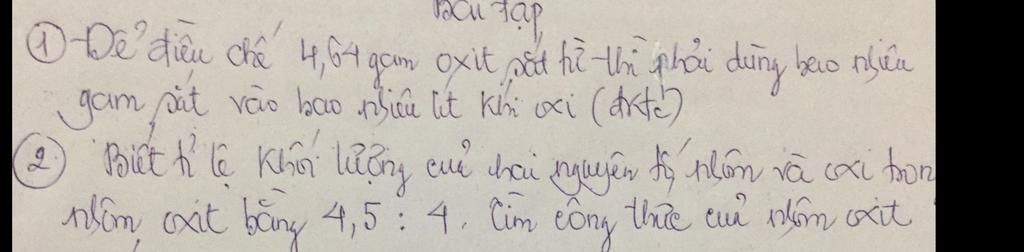 Bài tập
① Để điều chế 4,64 gam oxit sắt từ thì phải dùng bao nhiêu
gam sắt vào bao nhiêu lít khí oxi (đktc)
② Biết tỉ lệ khối lượng của hai nguyên tố nhôm và oxi tron
nhôm oxit bằng 4,5 : 4. Tìm công thức của nhôm oxit